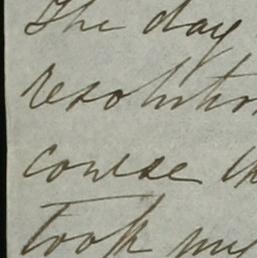 The day
resolution
course th
took my